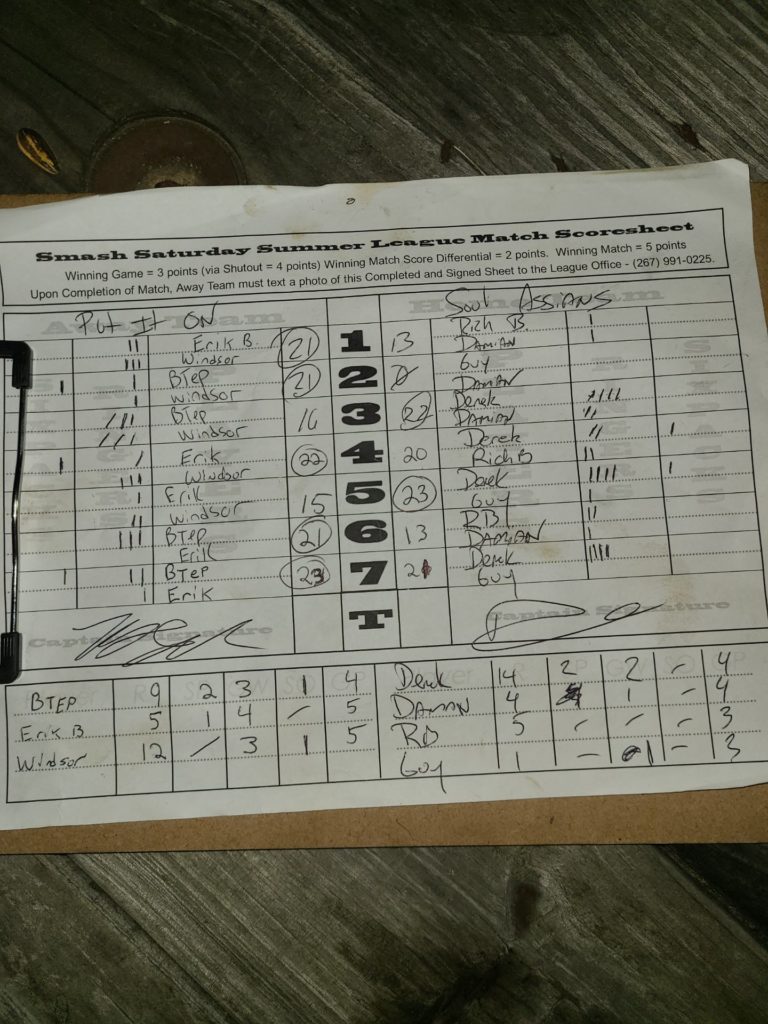 Smash Saturday Summer League Match Scoresheet
Winning Game = 3 points (via Shutout = 4 points) Winning Match Score Differential = 2 points. Winning Match = 5 points
Upon Completion of Match, Away Team must text a photo of this Completed and Signed Sheet to the League Office - (267) 991-0225.
Away Team Home Team
Put It ON Soul Assians
II Erik B. 21 1 13 Rich B I
III Windsor DAMIAN I
I I BTep 21 2 0 Guy
I Windsor DAMAN
III BTep 16 3 22 Derek IIIII
III Windsor DAMIAN II
I I Erik 22 4 20 Derek II I
III Windsor Rich B II
I Erik 15 5 23 Derek IIII I
II Windsor Guy I
III BTep 21 6 13 RB II
Erik DAMIAN I
I II BTep 23 7 21 Derek IIII
I Erik Guy
T
Captain Signature Captain Signature
BTEP 9 2 3 1 4 Derek 14 2 2 - 4
Erik B 5 1 4 - 5 DAMAN 4 1 - 4
Windsor 12 / 3 1 5 RB 5 - - - 3
Guy 1 - 1 - 3